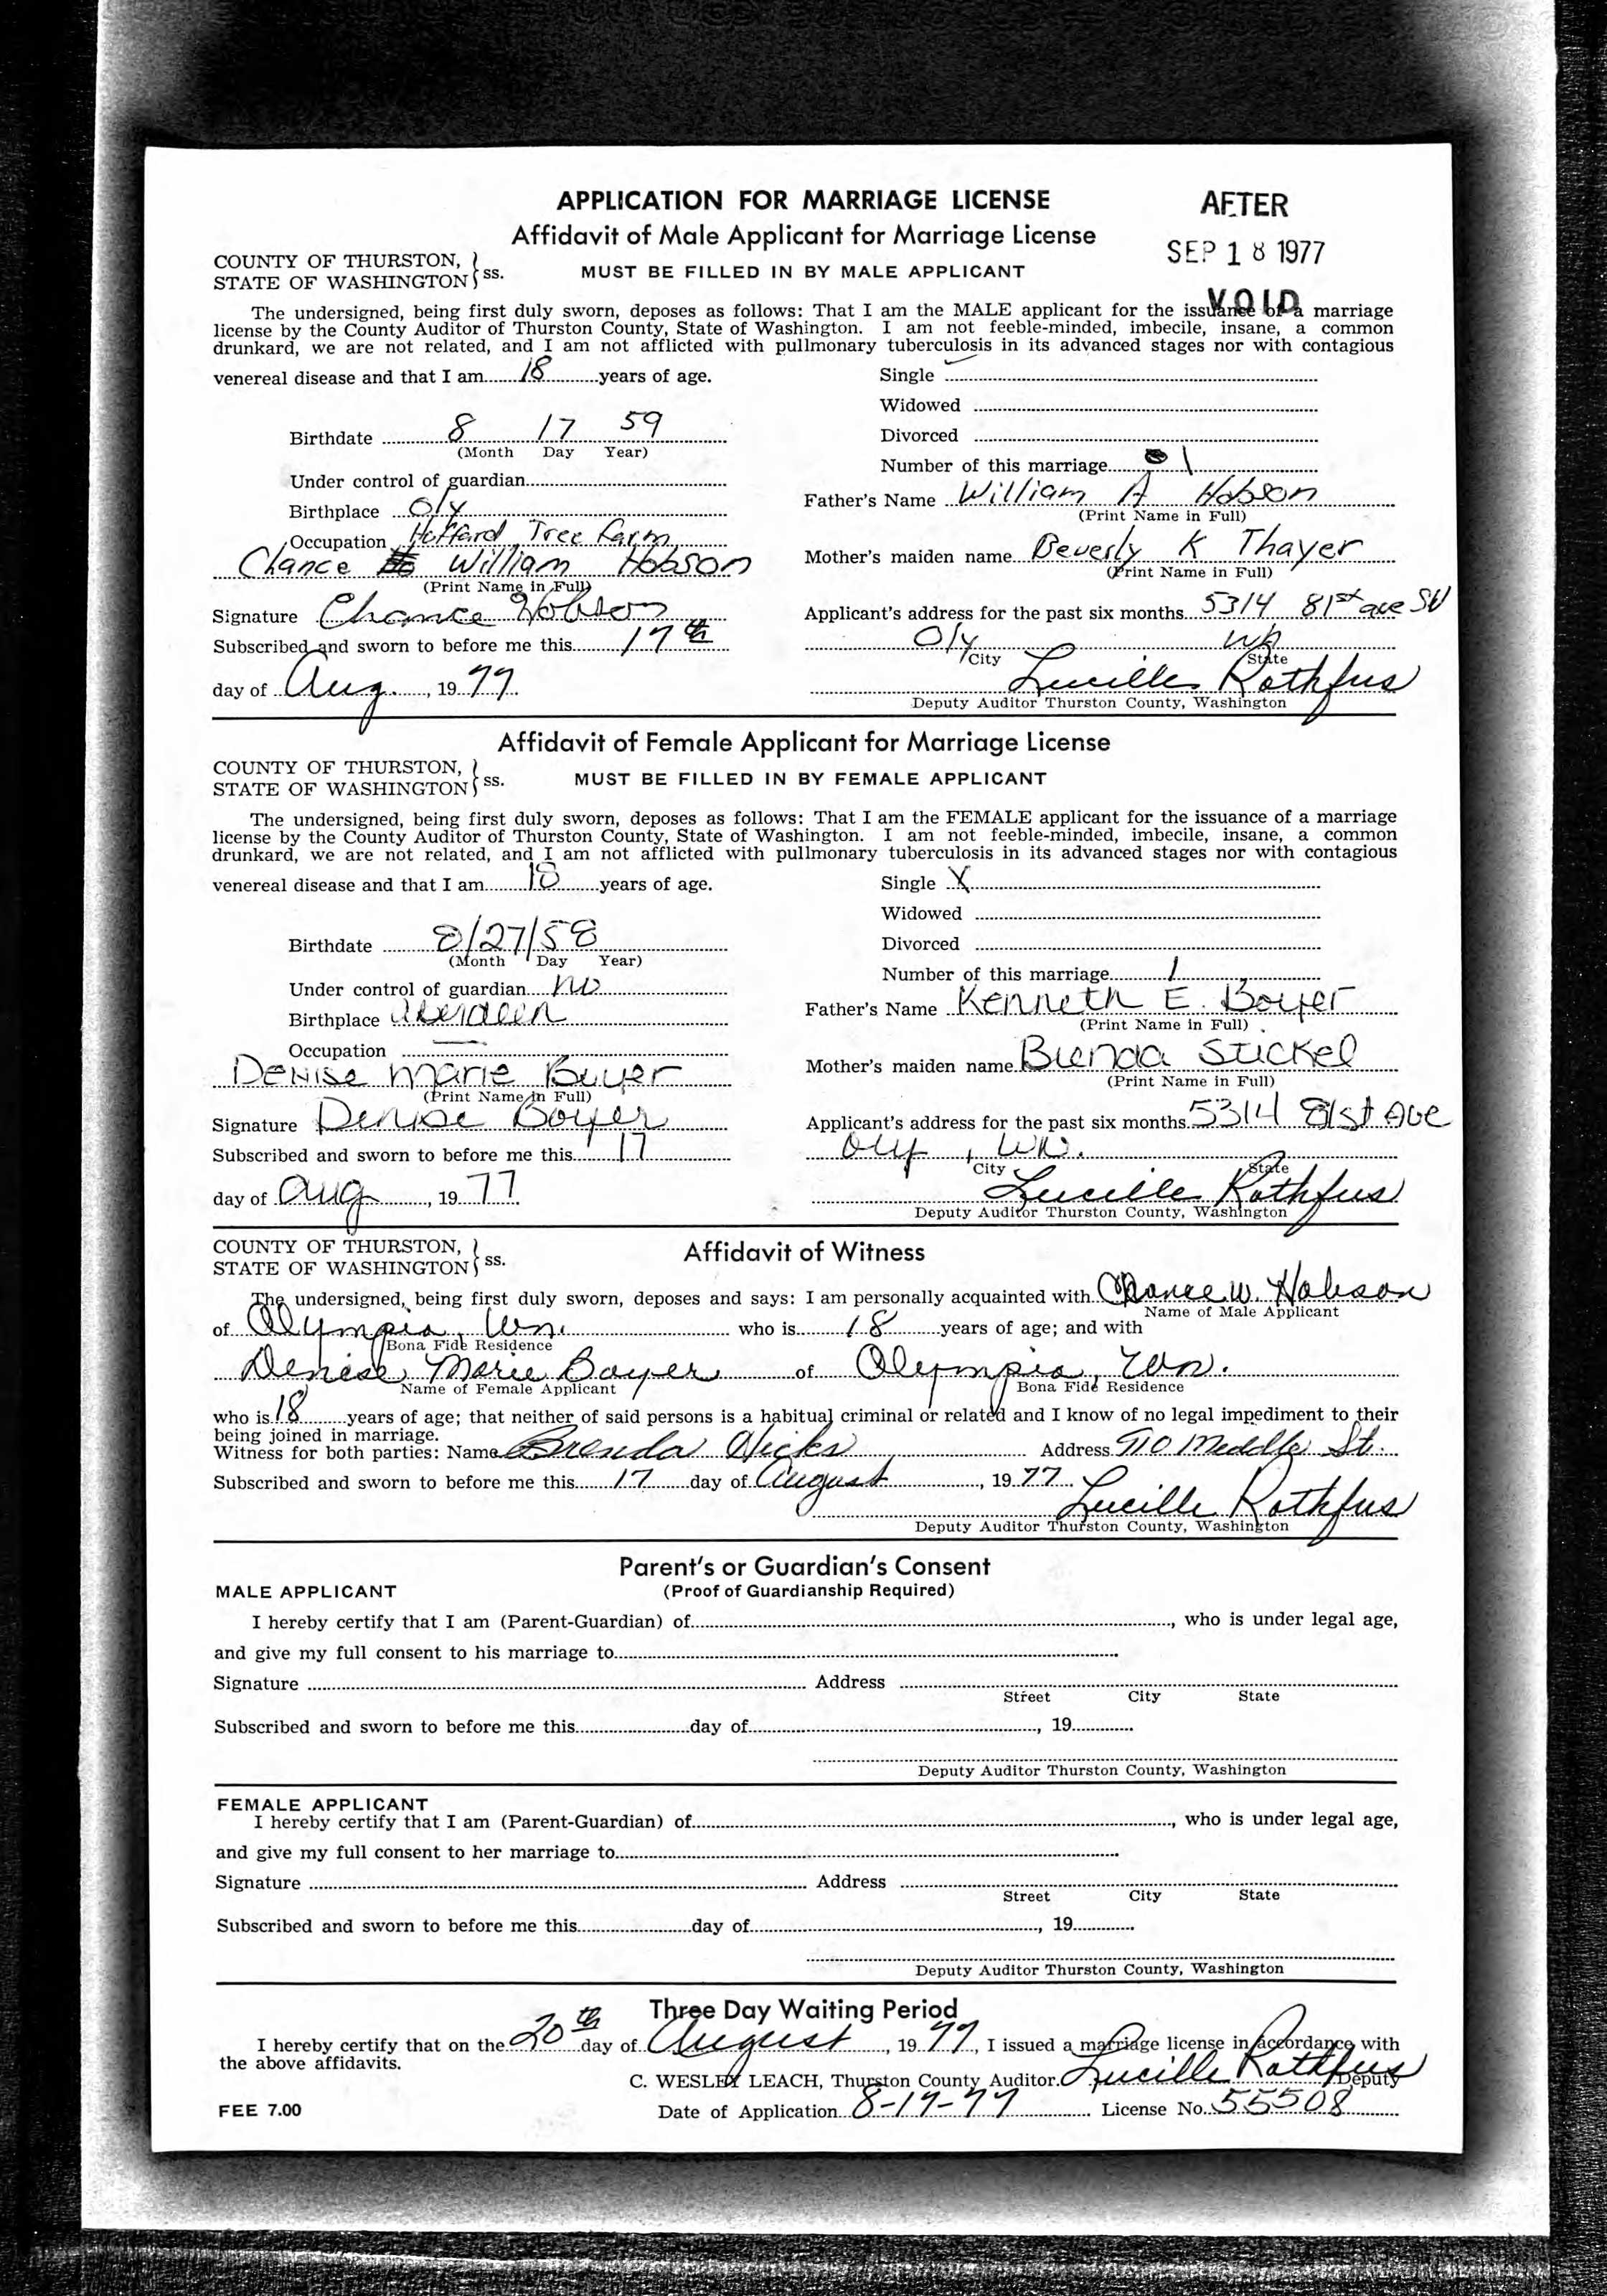 APPLICATION FOR MARRIAGE LICENSE
AFTER
Affidavit of Male Applicant for Marriage License
SEP 18 1977
COUNTY OF THURSTON, } ss.
STATE OF WASHINGTON
MUST BE FILLED IN BY MALE APPLICANT
VOID
The undersigned, being first duly sworn, deposes as follows: That I am the MALE applicant for the issuance of a marriage
license by the County Auditor of Thurston County, State of Washington. I am not feeble-minded, imbecile, insane, a common
drunkard, we are not related, and I am not afflicted with pulmonary tuberculosis in its advanced stages nor with contagious
venereal disease and that I am 18 years of age.
Single
Widowed
Birthdate 8 17 59
(Month Day Year)
Divorced
Number of this marriage 1
Under control of guardian
Father's Name William A Hobson
(Print Name in Full)
Birthplace Oly
Occupation Huffard Tree Farm
Mother's maiden name Beverly K Thayer
(Print Name in Full)
Chance William Hobson
(Print Name in Full)
Signature Chance Hobson
Applicant's address for the past six months 5314 81st ave SW
Subscribed and sworn to before me this 17th
Oly Wn
City State
day of Aug., 1977.
Lucille Rothfus
Deputy Auditor Thurston County, Washington
Affidavit of Female Applicant for Marriage License
COUNTY OF THURSTON, } ss.
STATE OF WASHINGTON
MUST BE FILLED IN BY FEMALE APPLICANT
The undersigned, being first duly sworn, deposes as follows: That I am the FEMALE applicant for the issuance of a marriage
license by the County Auditor of Thurston County, State of Washington. I am not feeble-minded, imbecile, insane, a common
drunkard, we are not related, and I am not afflicted with pulmonary tuberculosis in its advanced stages nor with contagious
venereal disease and that I am 18 years of age.
Single X
Widowed
Birthdate 8/27/58
(Month Day Year)
Divorced
Number of this marriage 1
Under control of guardian no
Father's Name Kenneth E. Boyer
(Print Name in Full)
Birthplace Aberdeen
Occupation —
Mother's maiden name Brenda Stickel
(Print Name in Full)
Denise Marie Boyer
(Print Name in Full)
Signature Denise Boyer
Applicant's address for the past six months 5314 81st Ave
Subscribed and sworn to before me this 17
Oly, Wn.
City State
day of Aug, 1977.
Lucille Rothfus
Deputy Auditor Thurston County, Washington
COUNTY OF THURSTON, } ss.
STATE OF WASHINGTON
Affidavit of Witness
The undersigned, being first duly sworn, deposes and says: I am personally acquainted with Chance W. Hobson
Name of Male Applicant
of Olympia, Wn. who is 18 years of age; and with
Bona Fide Residence
Denise Marie Boyer of Olympia, Wn.
Name of Female Applicant Bona Fide Residence
who is 18 years of age; that neither of said persons is a habitual criminal or related and I know of no legal impediment to their
being joined in marriage.
Witness for both parties: Name Brenda Hicks Address 910 Middle St.
Subscribed and sworn to before me this 17 day of August, 1977.
Lucille Rothfus
Deputy Auditor Thurston County, Washington
Parent's or Guardian's Consent
MALE APPLICANT
(Proof of Guardianship Required)
I hereby certify that I am (Parent-Guardian) of, who is under legal age,
and give my full consent to his marriage to
Signature Address
Street City State
Subscribed and sworn to before me this day of, 19
Deputy Auditor Thurston County, Washington
FEMALE APPLICANT
I hereby certify that I am (Parent-Guardian) of, who is under legal age,
and give my full consent to her marriage to
Signature Address
Street City State
Subscribed and sworn to before me this day of, 19
Deputy Auditor Thurston County, Washington
Three Day Waiting Period
I hereby certify that on the 20th day of August, 1977, I issued a marriage license in accordance with
the above affidavits.
C. WESLEY LEACH, Thurston County Auditor. Lucille Rothfus Deputy
FEE 7.00
Date of Application 8-17-77 License No. 55508